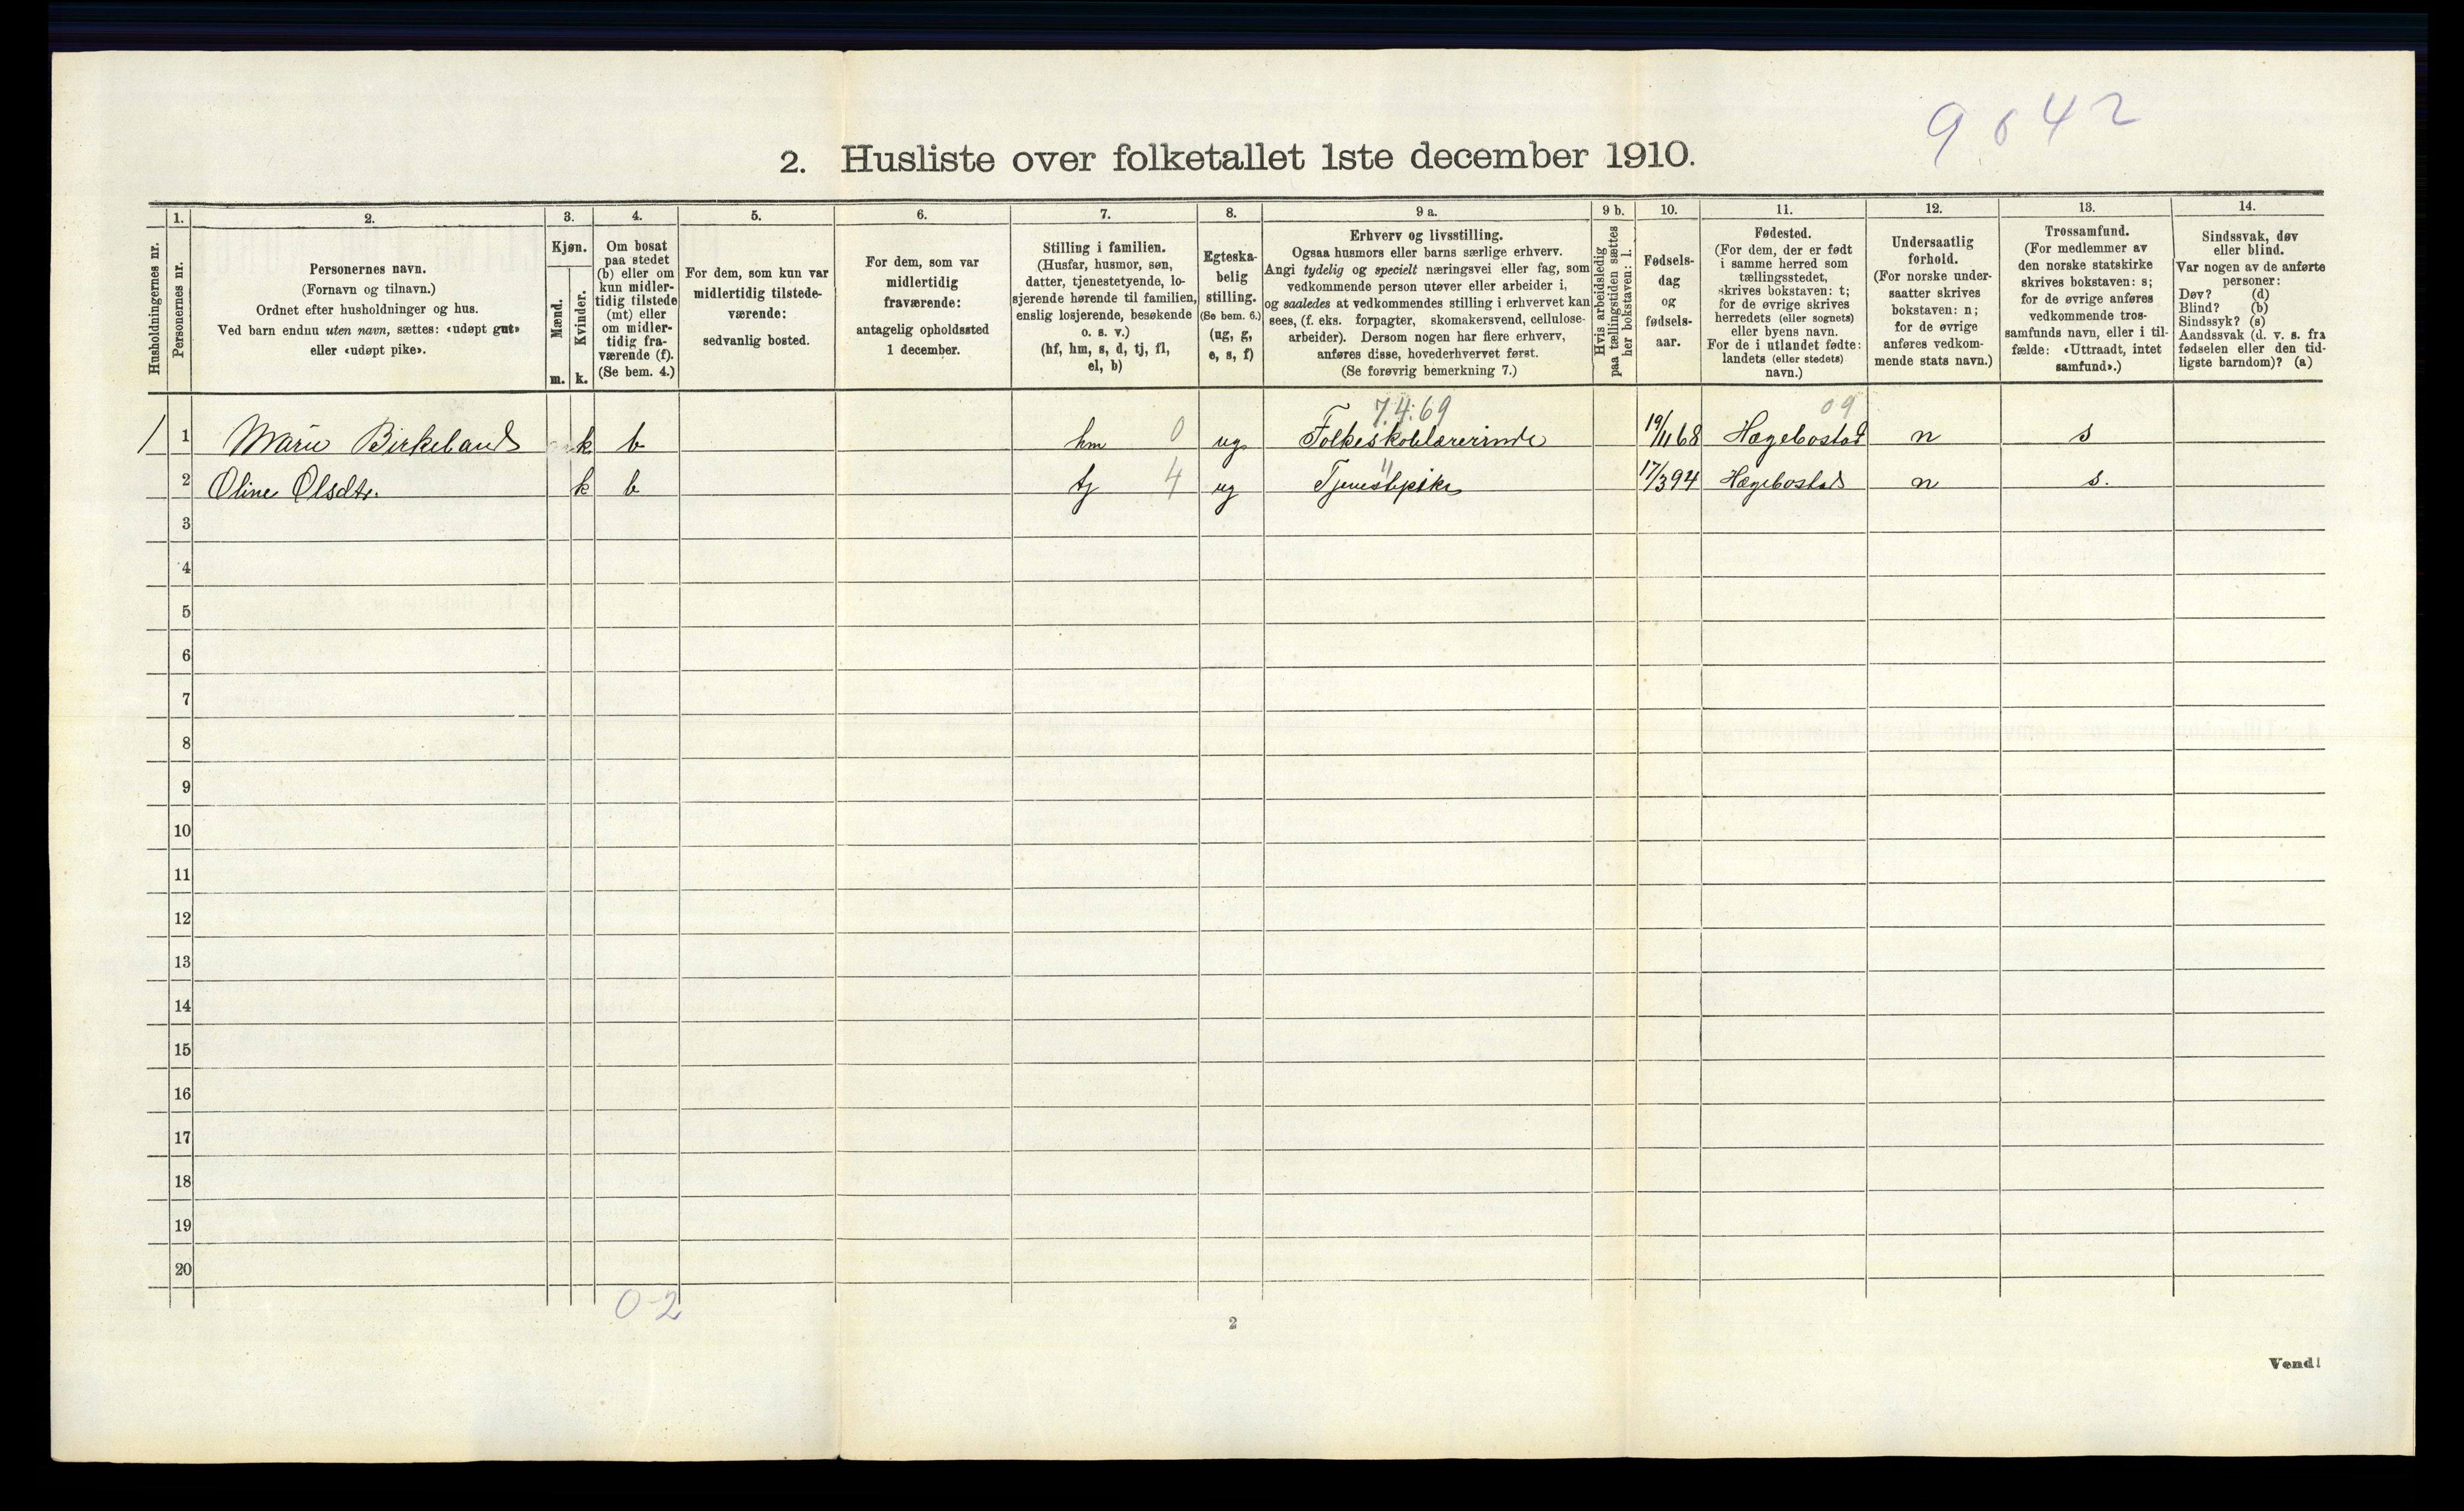 9 6 4 2
2. Husliste over folketallet 1ste december 1910.
Husholdningernes nr.
1.
Personernes nr.
2.
Personernes navn.
(Fornavn og tilnavn.)
Ordnet efter husholdninger og hus.
Ved barn endnu uten navn, sættes: «udøpt gut»
eller «udøpt pike».
3.
Kjøn.
Mænd.
Kvinder.
m. k.
4.
Om bosat
paa stedet
(b) eller om
kun midler-
tidig tilstede
(mt) eller
om midler-
tidig fra-
værende (f).
(Se bem. 4.)
5.
For dem, som kun var
midlertidig tilstede-
værende:
sedvanlig bosted.
6.
For dem, som var
midlertidig
fraværende:
antagelig opholdssted
1 december.
7.
Stilling i familien.
(Husfar, husmor, søn,
datter, tjenestetyende, lo-
sjerende hørende til familien,
enslig losjerende, besøkende
o. s. v.)
(hf, hm, s, d, tj, fl,
el, b)
8.
Egteska-
belig
stilling.
(Se bem. 6.)
(ug, g,
e, s, f)
9 a.
Erhverv og livsstilling.
Ogsaa husmors eller barns særlige erhverv.
Angi tydelig og specielt næringsvei eller fag, som
vedkommende person utøver eller arbeider i,
og saaledes at vedkommendes stilling i erhvervet kan
sees, (f. eks. forpagter, skomakersvend, cellulose-
arbeider). Dersom nogen har flere erhverv,
anføres disse, hovederhvervet først.
(Se forøvrig bemerkning 7.)
9 b.
Hvis arbeidsledig
paa tællingstiden sættes
her bokstaven: l.
10.
Fødsels-
dag
og
fødsels-
aar.
11.
Fødested.
(For dem, der er født
i samme herred som
tællingsstedet,
skrives bokstaven: t;
for de øvrige skrives
herredets (eller sognets)
eller byens navn.
For de i utlandet fødte:
landets (eller stedets)
navn.)
12.
Undersaatlig
forhold.
(For norske under-
saatter skrives
bokstaven: n;
for de øvrige
anføres vedkom-
mende stats navn.)
13.
Trossamfund.
(For medlemmer av
den norske statskirke
skrives bokstaven: s;
for de øvrige anføres
vedkommende tros-
samfunds navn, eller i til-
fælde: «Uttraadt, intet
samfund».)
14.
Sindssvak, døv
eller blind.
Var nogen av de anførte
personer:
Døv? (d)
Blind? (b)
Sindssyk? (s)
Aandssvak (d. v. s. fra
fødselen eller den tid-
ligste barndom)? (a)
7.4.69 09
1 1 Marie Birkeland k b hm 0 ug Folkeskolelærerinde 19/11 68 Hægebostad n s
2 Oline Olsdtr. k b tj 4 ug Tjenestepike 17/3 94 Hægebostad n s.
3
4
5
6
7
8
9
10
11
12
13
14
15
16
17
18
19
20
0-2
2
Vend!